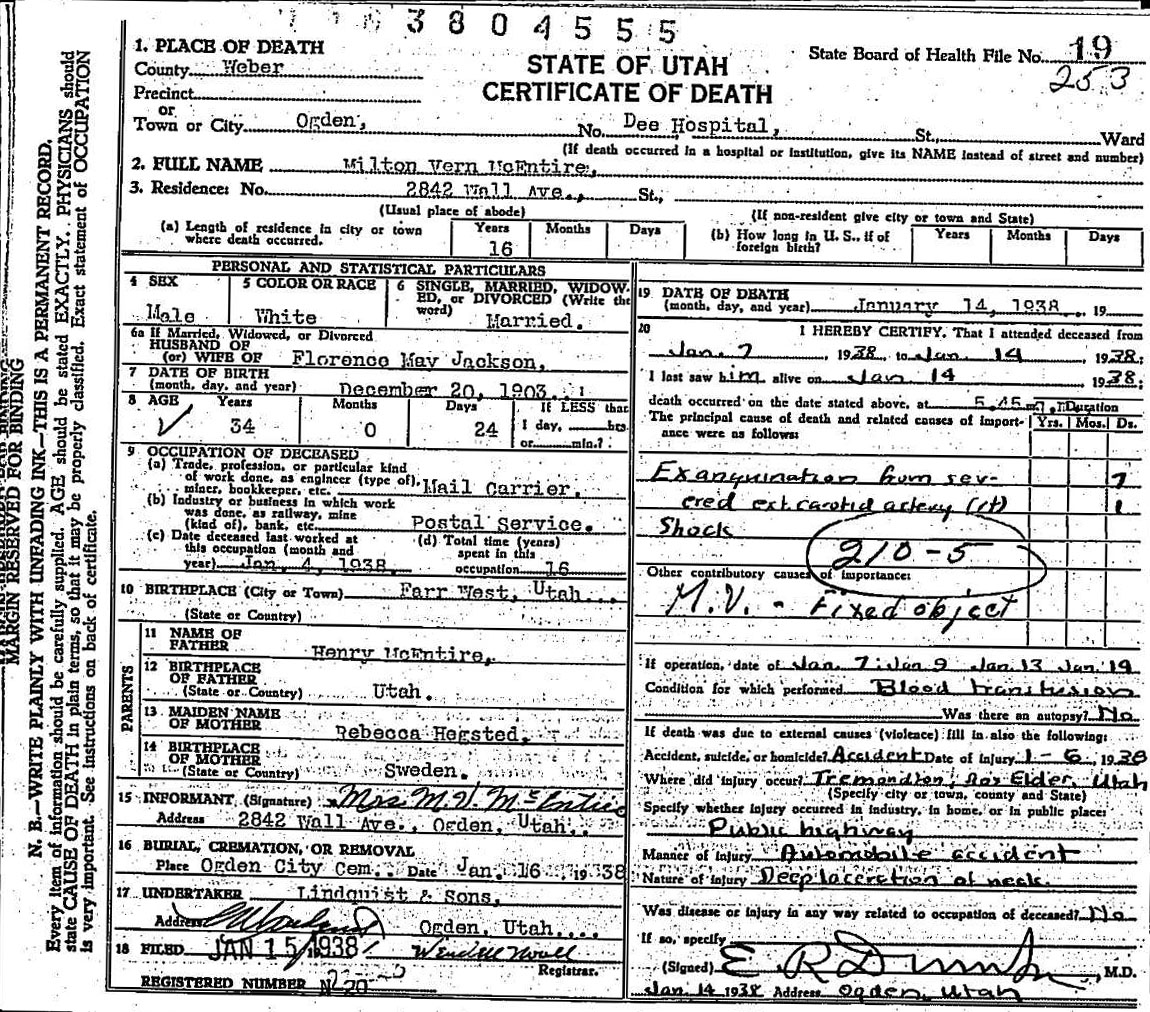 3804555
1. PLACE OF DEATH
County Weber
Precinct
or
Town or City Ogden, No. Dee Hospital, St. Ward
STATE OF UTAH
CERTIFICATE OF DEATH
State Board of Health File No. 19
253
(If death occurred in a hospital or institution, give its NAME instead of street and number)
2. FULL NAME Milton Vern McEntire,
3. Residence: No. 2842 Wall Ave., St.,
(Usual place of abode) (If non-resident give city or town and State)
(a) Length of residence in city or town where death occurred. Years 16 Months Days
(b) How long in U. S., if of foreign birth? Years Months Days
PERSONAL AND STATISTICAL PARTICULARS
4 SEX Male
5 COLOR OR RACE White
6 SINGLE, MARRIED, WIDOWED, or DIVORCED (Write the word) Married.
6a If Married, Widowed, or Divorced
HUSBAND OF
(or) WIFE OF Florence May Jackson,
7 DATE OF BIRTH
(month, day, and year) December 20, 1903.
8 AGE Years 34 Months 0 Days 24 If LESS than 1 day, hrs. or min.?
9 OCCUPATION OF DECEASED
(a) Trade, profession, or particular kind
of work done, as engineer (type of),
miner, bookkeeper, etc. Mail Carrier.
(b) Industry or business in which work
was done, as railway, mine
(kind of), bank, etc. Postal Service.
(c) Date deceased last worked at
this occupation (month and
year) Jan. 4, 1938.
(d) Total time (years)
spent in this
occupation 16
10 BIRTHPLACE (City or Town) Farr West, Utah.
(State or Country)
PARENTS
11 NAME OF
FATHER Henry McEntire,
12 BIRTHPLACE
OF FATHER
(State or Country) Utah.
13 MAIDEN NAME
OF MOTHER Rebecca Hegsted,
14 BIRTHPLACE
OF MOTHER
(State or Country) Sweden.
15 INFORMANT (Signature) Mrs M V McEntire
Address 2842 Wall Ave., Ogden, Utah.
16 BURIAL, CREMATION, OR REMOVAL
Place Ogden City Cem. Date Jan. 16 1938
17 UNDERTAKER Lindquist & Sons,
Address Ogden, Utah.
18 FILED JAN 15 1938
Registrar.
REGISTERED NUMBER
19 DATE OF DEATH
(month, day, and year) January 14, 1938. 19
20 I HEREBY CERTIFY, That I attended deceased from
Jan. 7, 1938, to Jan 14 1938;
I last saw him alive on Jan 14 1938;
death occurred on the date stated above, at 5.45 m. Duration
The principal cause of death and related causes of importance were as follows: Yrs. Mos. Ds.
Exanguination from sev- 7
ered ext carotid artery (rt) 1
Shock
210-5
Other contributory causes of importance:
M.V. - Fixed object
If operation, date of Jan. 7: Jan 9 Jan 13 Jan 14
Condition for which performed Blood transfusion
Was there an autopsy? No
If death was due to external causes (violence) fill in also the following:
Accident, suicide, or homicide? Accident Date of injury 1-6, 1938
Where did injury occur? Tremonton, Box Elder, Utah
(Specify city or town, county and State)
Specify whether injury occurred in industry, in home, or in public place:
Public highway
Manner of injury Automobile accident
Nature of injury Deep laceration of neck.
Was disease or injury in any way related to occupation of deceased? No
If so, specify
(Signed) M.D.
Jan. 14 1938 Address Ogden, Utah
MARGIN RESERVED FOR BINDING
N. B.—WRITE PLAINLY WITH UNFADING INK—THIS IS A PERMANENT RECORD.
Every item of information should be carefully supplied. AGE should be stated EXACTLY. PHYSICIANS should
state CAUSE OF DEATH in plain terms, so that it may be properly classified. Exact statement of OCCUPATION
is very important. See instructions on back of certificate.